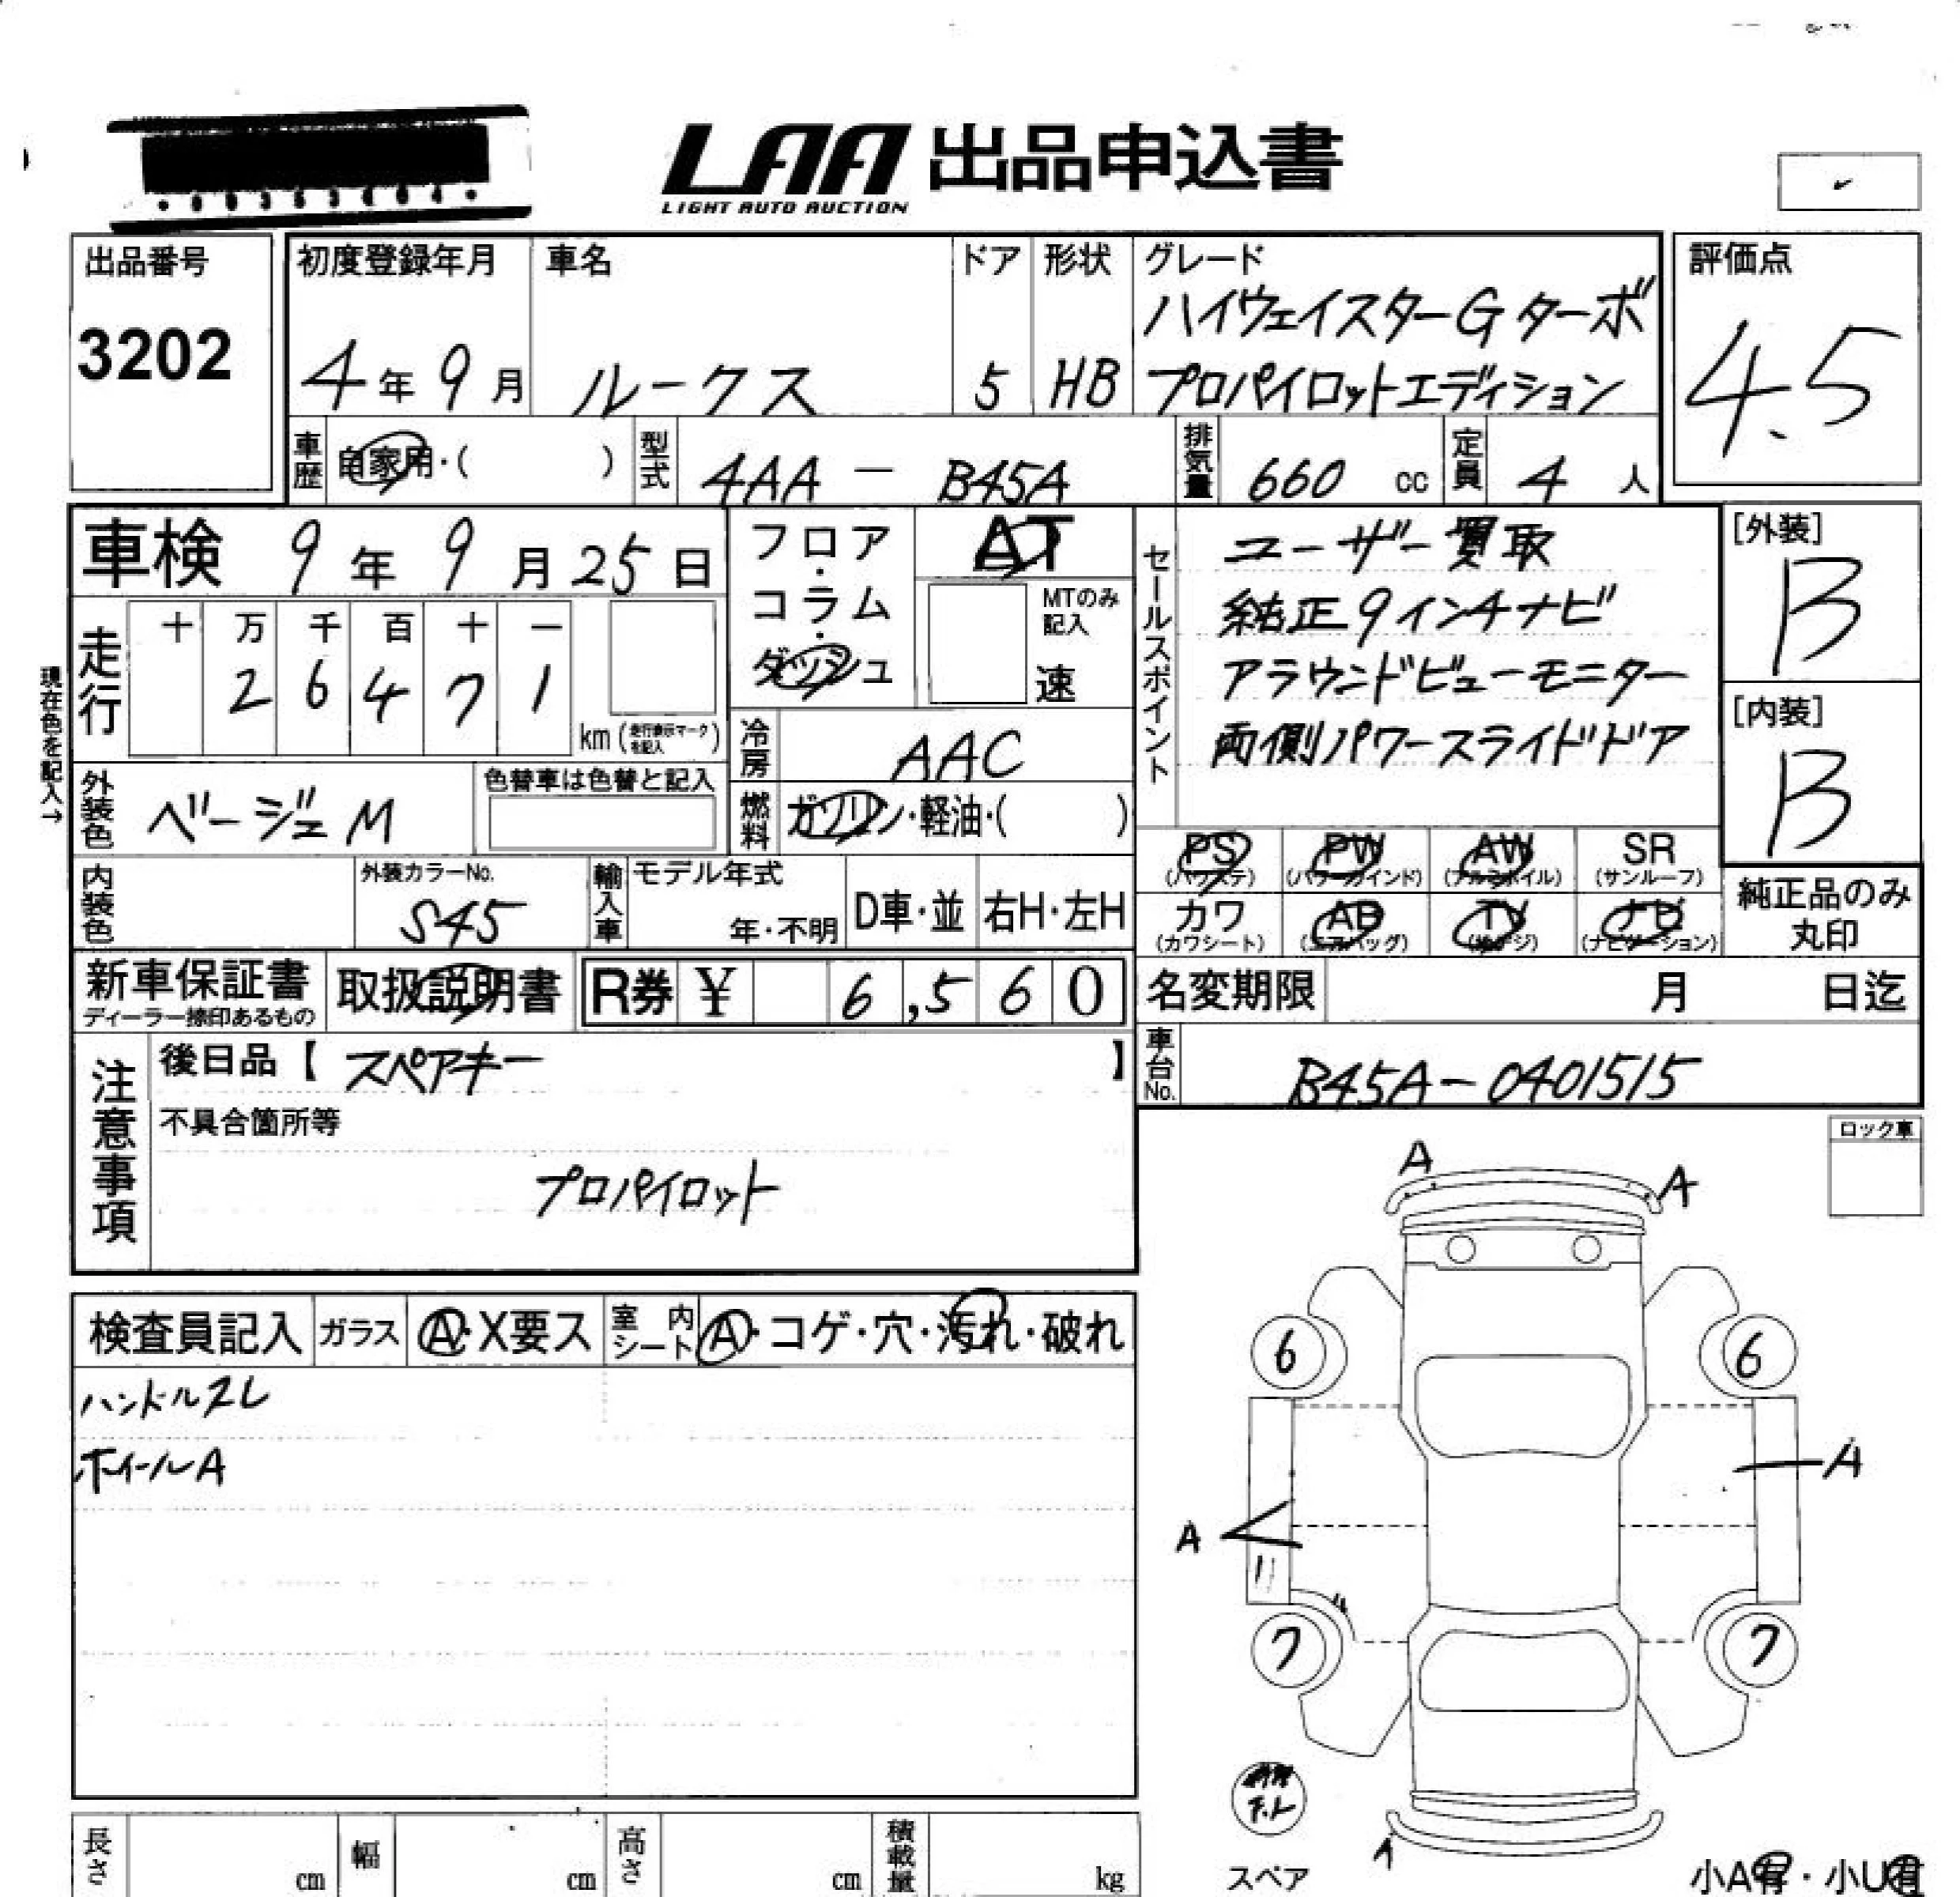 LAA 出品申込書
LIGHT AUTO AUCTION
出品番号
3202
初度登録年月
4年9月
車名
ルークス
ドア
5
形状
HB
グレード
ハイウェイスターGターボ
プロパイロットエディション
評価点
4.5
車歴
自家用・( )
型式
4AA - B45A
排気量
660 cc
定員
4 人
車検
9年9月25日
フロア・コラム・ダッシュ
AT
MTのみ記入
速
セールスポイント
ユーザー買取
純正9インチナビ
アラウンドビューモニター
両側パワースライドドア
[外装]
B
[内装]
B
現在色を記入→
走行
十 万 千 百 十 一
2 6 4 7 1
km(走行表示マークを記入)
冷房
AAC
外装色
ベージュM
色替車は色替と記入
燃料
ガソリン・軽油・( )
PS
(パワステ)
PW
(パワーウインド)
AW
(アルミホイル)
SR
(サンルーフ)
カワ
(カワシート)
AB
(エアバッグ)
TV
ナビ
(ナビゲーション)
純正品のみ
丸印
内装色
外装カラーNo.
S45
輸入車
モデル年式
年・不明
D車・並
右H・左H
新車保証書
ディーラー捺印あるもの
取扱説明書
R券 ¥ 6,560
名変期限
月 日迄
車台No.
B45A-0401515
注意事項
後日品【 スペアキー 】
不具合箇所等
プロパイロット
ロック車
A
A
検査員記入
ガラス
A・X要ス
室内シート
A・コゲ・穴・汚れ・破れ
ハンドルスレ
ホイールA
6
6
A
A
7
7
スペア
A
小A有・小U有
長さ
cm
幅
cm
高さ
cm
積載量
kg